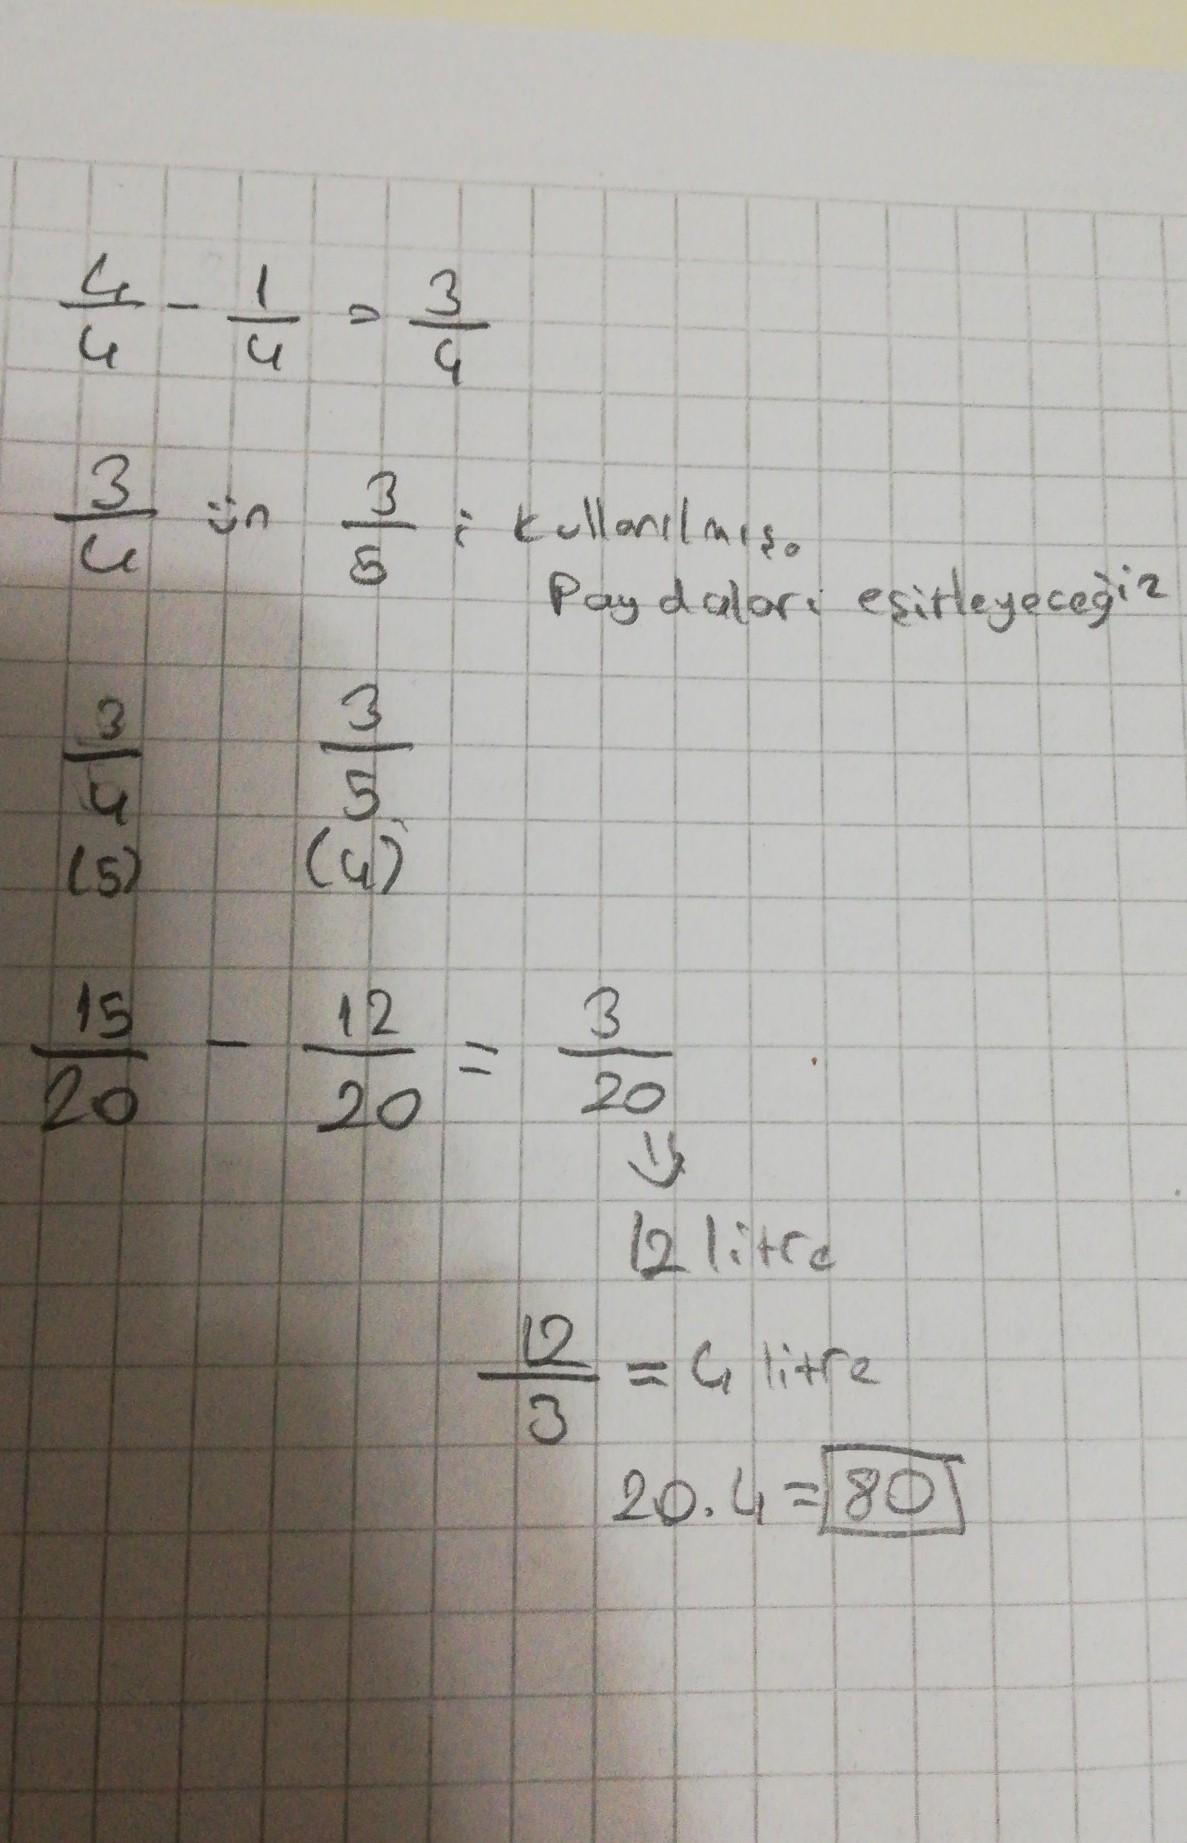 4/4 - 1/4 = 3/4
3/4 ün 3/5 i kullanılmış.
Paydaları eşitleyeceğiz
3/4 3/5
(5) (4)
15/20 - 12/20 = 3/20
↓
12 litre
12/3 = 4 litre
20.4=80